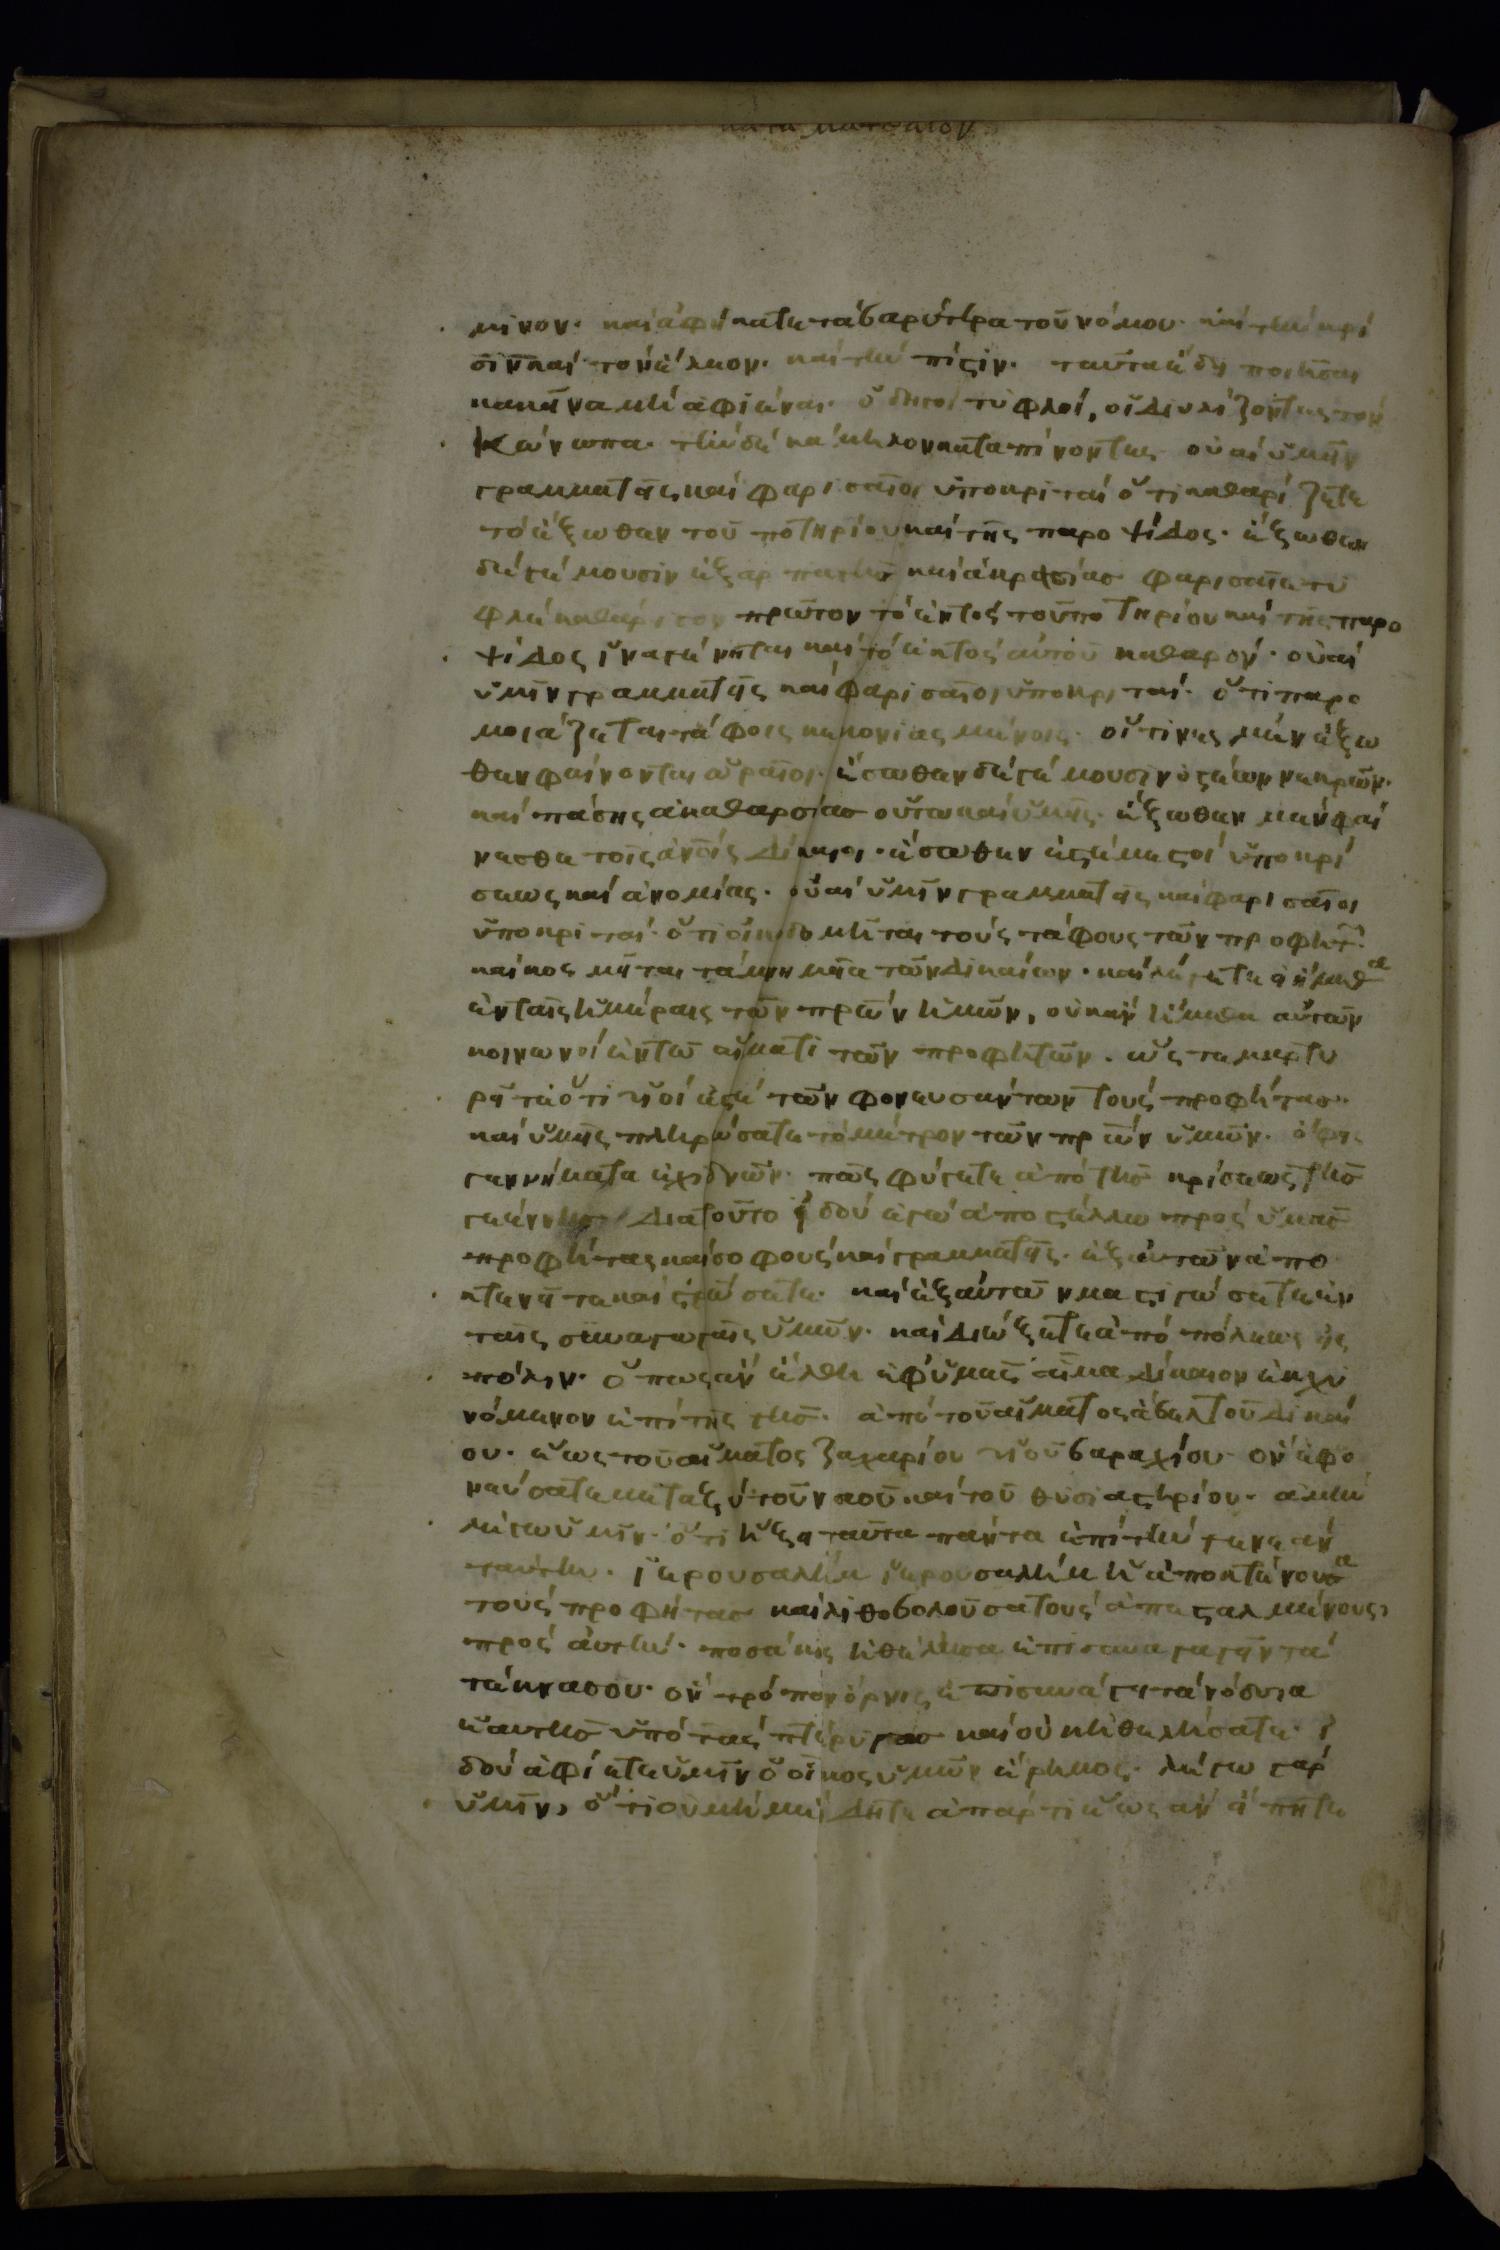 κατα ματθαιον
μινον· καὶ ἀφήκατε τὰ βαρύτερα τοῦ νόμου· καὶ τὴν κρί
σιν καὶ τὸν ἔλεον· καὶ τὴν πίστιν· ταῦτα ἔδει ποιῆσαι
κακεῖνα μὴ ἀφιέναι· ὁδηγοὶ τυφλοί, οἱ διυλίζοντες τὸν
κώνωπα· τὴν δὲ κάμηλον καταπίνοντες οὐαὶ ὑμῖν
γραμματεῖς καὶ φαρισαῖοι ὑποκριταί ὅτι καθαρίζετε
τὸ ἔξωθεν τοῦ ποτηρίου καὶ τῆς παροψίδος· ἔξωθεν
δὲ γέμουσιν ἐξ ἁρπαγῆς καὶ ἀκρασίας φαρισαῖε τυ
φλὲ καθάρισον πρῶτον τὸ ἐντὸς τοῦ ποτηρίου καὶ τῆς παρο
ψίδος ἵνα γένηται καὶ τὸ ἐκτὸς αὐτοῦ καθαρόν· οὐαὶ
ὑμῖν γραμματεῖς καὶ φαρισαῖοι ὑποκριταί· ὅτι παρο
μοιάζεται τάφοις κεκονιαςμένοις· οἵτινες μὲν ἔξω
θεν φαίνονται ὡραῖοι· ἔσωθεν δὲ γέμουσιν ὀστέων νεκρῶν·
καὶ πάσης ἀκαθαρσίας οὕτω καὶ ὑμεῖς· ἔξωθεν μὲν φαί
νεσθε τοῖς ἀνοῖς δίκαιοι· ἔσωθεν ἐστὲ μεστοὶ ὑποκρί
σεως καὶ ἀνομίας· οὐαὶ ὑμῖν γραμματεῖς καὶ φαρισαῖοι
ὑποκριταί· ὅτι οἰκοδομῆται τοὺς τάφους τῶν προφητ
καὶ κοςμεῖται τὰ μνημεῖα τῶν δικαίων· καὶ λέγετε εἰ ἤμεθα
ἐν ταῖς ἡμέραις τῶν πρων ἡμῶν, οὐκ ἂν ἤμεθα αὐτῶν
κοινωνοὶ ἐν τῷ αἵματι τῶν προφητῶν. ὥςτε μαρτυ
ρεῖτε ὅτι υἱοί ἐστε τῶν φονευσάντων τοὺς προφήτας·
καὶ ὑμεῖς πληρώσατε τὸ μέτρον τῶν πρων ὑμῶν· ὄφεις
γεννήματα ἐχιδνῶν· πῶς φύγητε ἀπὸ τῆς κρίσεως τῆς
γεέννης Διατοῦτο ἰδοὺ ἐγὼ ἀποστέλλω πρὸς ὑμᾶς
προφήτας καὶ σοφοὺς καὶ γραμματεῖς· ἐξ αὐτῶν ἀπο
κτενεῖτε καὶ στρώσατε· καὶ ἐξ αὐτῶν μαστιγώσατε ἐν
ταῖς συναγωγαῖς ὑμῶν· καὶ διώξητε ἀπὸ πόλεως εἰς
πόλιν· ὅπως ἂν ἔλθη ἐφ ὑμᾶς αἷμα δίκαιον ἐκχυ
νόμενον ἐπὶ τῆς γῆς· ἀπὸ τοῦ αἵματος ἄβελ τοῦ δικαί
ου· ἕως τοῦ αἵματος ζαχαρίου υἱοῦ βαραχίου· ὃν ἐφο
νεύσατε μεταξὺ τοῦ ναοῦ καὶ τοῦ θυσιαστηρίου· ἀμὴν
λέγω ὑμῖν· ὅτι ἥξει ταῦτα πάντα ἐπὶ τὴν γενεὰν
ταύτην· ἱερουσαλὴμ ἱερουσαλὴμ ἡ ἀποκτένουσα
τοὺς προφήτας καὶ λιθοβολοῦσα τοὺς ἀπεσταλμένους,
πρὸς αὐτήν· ποσάκις ἠθέλησα ἐπισυναγαγεῖν τὰ
τέκνα σου· ὃν τρόπον ὄρνις ἐπισυνάγει τὰ νόσσια
ἑαυτῆς ὑπὸ τὰς πτέρυγας καὶ οὐκ ἠθελήσατε· ἰ
δοὺ ἀφίεται ὑμῖν ὁ οἶκος ὑμῶν ἔρημος· λέγω γὰρ
ὑμῖν, ὅτι οὐ μή με ἴδητε ἀπάρτι ἕως ἂν εἴπητε